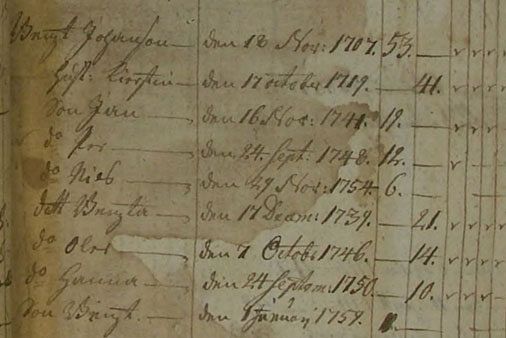 Bengt Johanson — den 18 Nov: 1707. 53. —
Hust: Kierstin — den 17 october 1719. — 41.
Son Jan — den 16 Nov: 1741. 19. —
do Per — den 24 Sept. 1748. 12. —
do Nils — den 29 Nov: 1754. 6. —
dott Bengta — den 17 Decem: 1739. — 21.
do — den 7 Octobr 1746. — 14.
do Hanna — den 24 Septem: 1750 — 10.
Son Bengt. — den 1 1759.